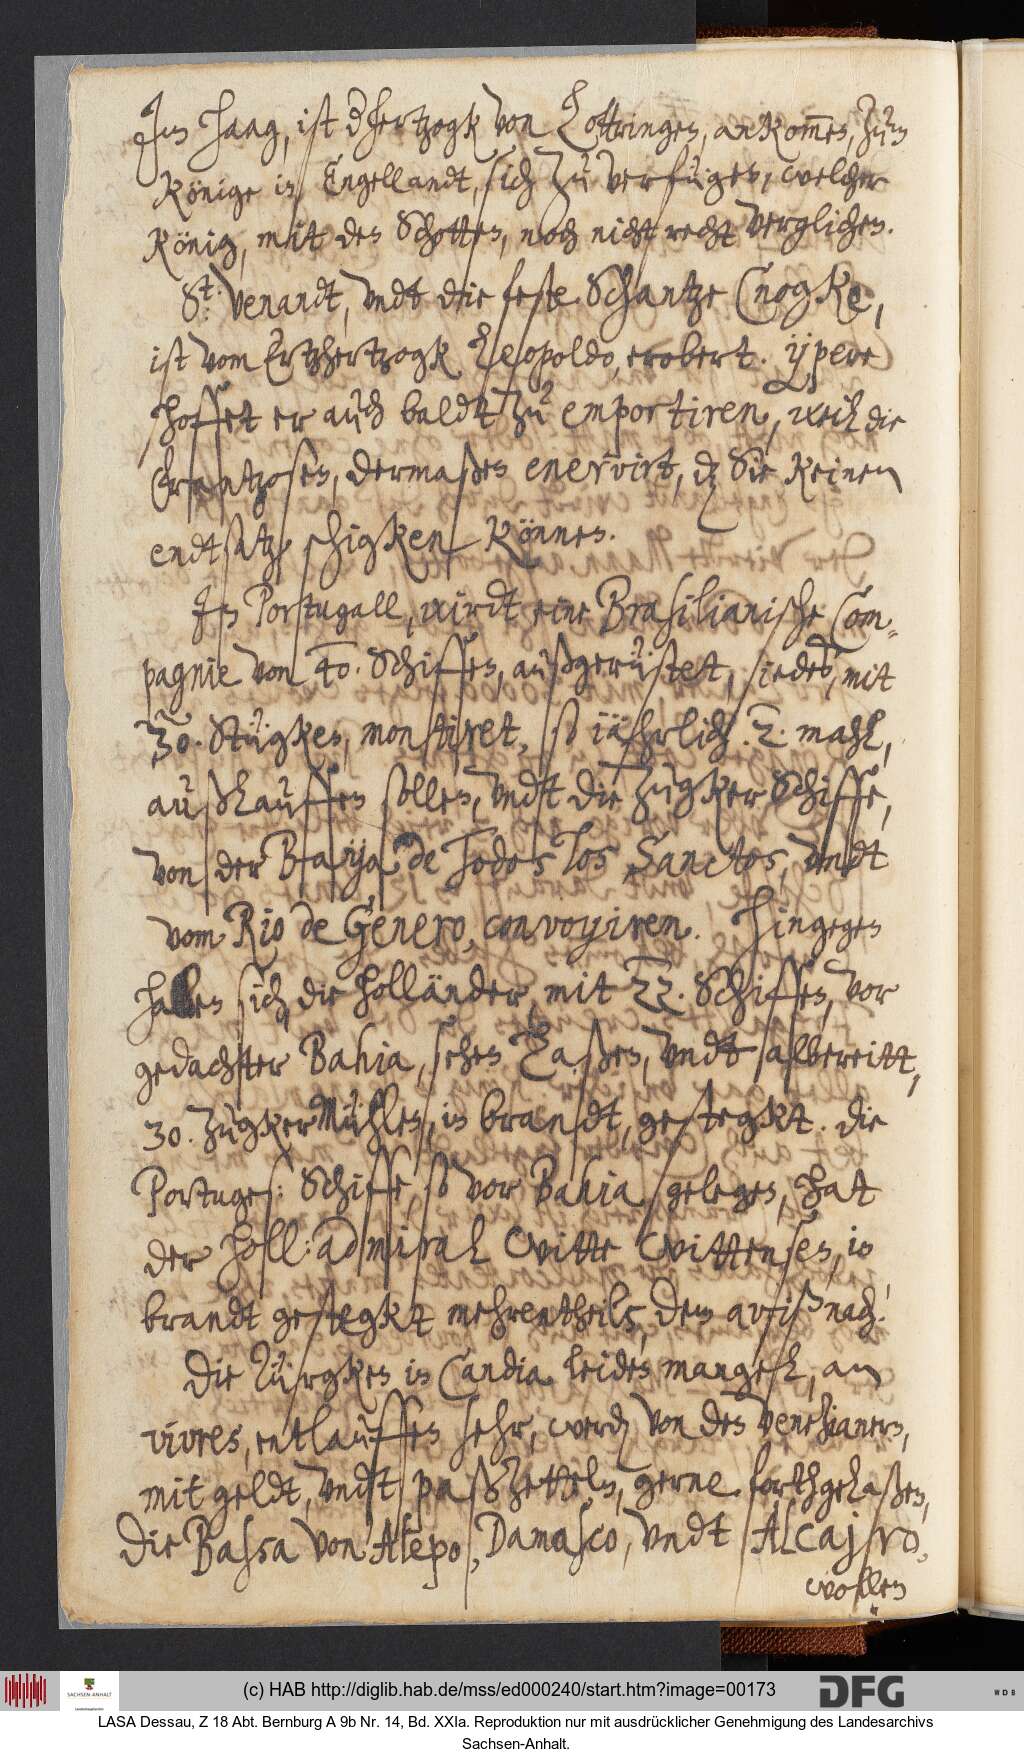 Im Haag, ist d hertzogk von Lottringen, ankom̅en, zum
Könige in Engellandt, sich zu verfügen, welcher
König, mitt den Schotten, noch nicht recht verglichen.
St: Venandt, vndt die feste Schantze Cnogke,
ist vom Ertzhertzogk Leopoldo, erobert. ÿpere
hoffet er auch baldt zu emportiren, weil die
Frantzosen, dermaßen enervirt, dz Sie keinen
endtsatz, schigken können.
In Portugall, wirdt eine Brasilianische Com-
pagnie von 40. Schiffen, außgerüstett, iedes, mit
30. Stügken, montiret, so iährlich. 2. mahl,
außlauffen sollen, vndt die Zugker Schiffe,
von der Baÿa de Todos los Sanctos, vndt
vom Rio de Genero, convoyiren. Hingegen
haben sich, die Holländer, mit 22. Schiffen, vor
gedachter Bahia, sehen laßen, vndt albereitt,
30. ZugkerMühlen, in brandt, gestegkt. die
Portuges: Schiffe, so vor Bahia, gelegen, hat
der Holl: admiral Witte Wittensen, in
brandt gestegkt mehrentheils, dem aviß nach.
Die Türgken in Candia leiden mangel, an
vivres, entlauffen sehr, werdn von den Venezianern,
mit geldt, vndt paßzetteln, gerne forthgelaßen,
Die Bassa von Alepo, Damasco, vndt Alcajro,
wollen
(c) HAB http://diglib.hab.de/mss/ed000240/start.htm?image=00173
SACHSEN-ANHALT
DFG
WDB
LASA Dessau, Z 18 Abt. Bernburg A 9b Nr. 14, Bd. XXIa. Reproduktion nur mit ausdrücklicher Genehmigung des Landesarchivs
Sachsen-Anhalt.